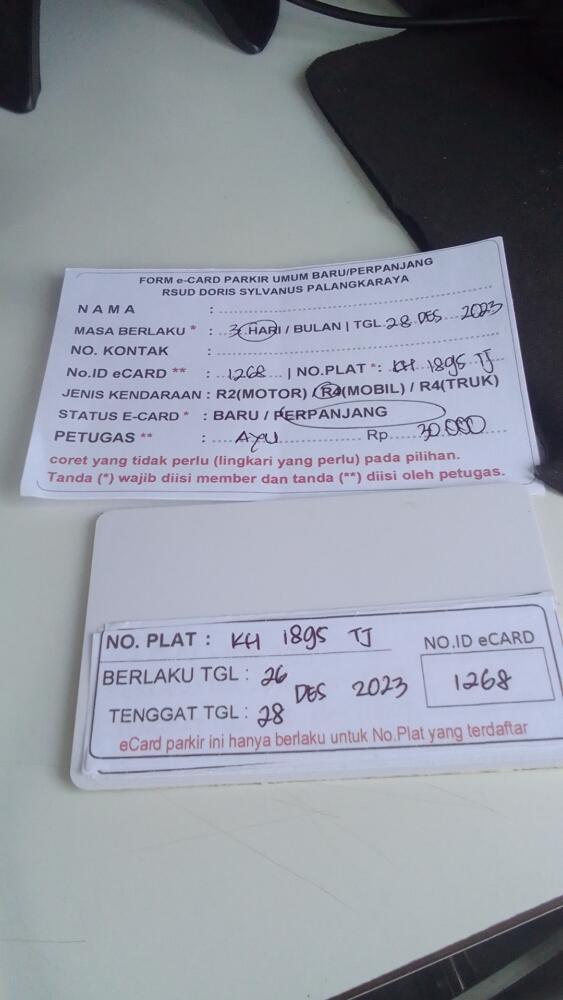 FORM e-CARD PARKIR UMUM BARU/PERPANJANG
RSUD DORIS SYLVANUS PALANGKARAYA
N A M A :
MASA BERLAKU * : 3 HARI / BULAN | TGL 28 DES 2023
NO. KONTAK :
No.ID eCARD ** : 1268 | NO.PLAT *: KH 1895 TJ
JENIS KENDARAAN : R2(MOTOR) / R4(MOBIL) / R4(TRUK)
STATUS E-CARD * : BARU / PERPANJANG
PETUGAS ** : AYU Rp 30.000
coret yang tidak perlu (lingkari yang perlu) pada pilihan.
Tanda (*) wajib diisi member dan tanda (**) diisi oleh petugas.
NO. PLAT : KH 1895 TJ
NO.ID eCARD
1268
BERLAKU TGL : 26
DES 2023
TENGGAT TGL : 28
eCard parkir ini hanya berlaku untuk No.Plat yang terdaftar